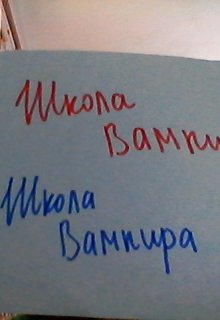 Школа
Вампи
Школа
Вампира